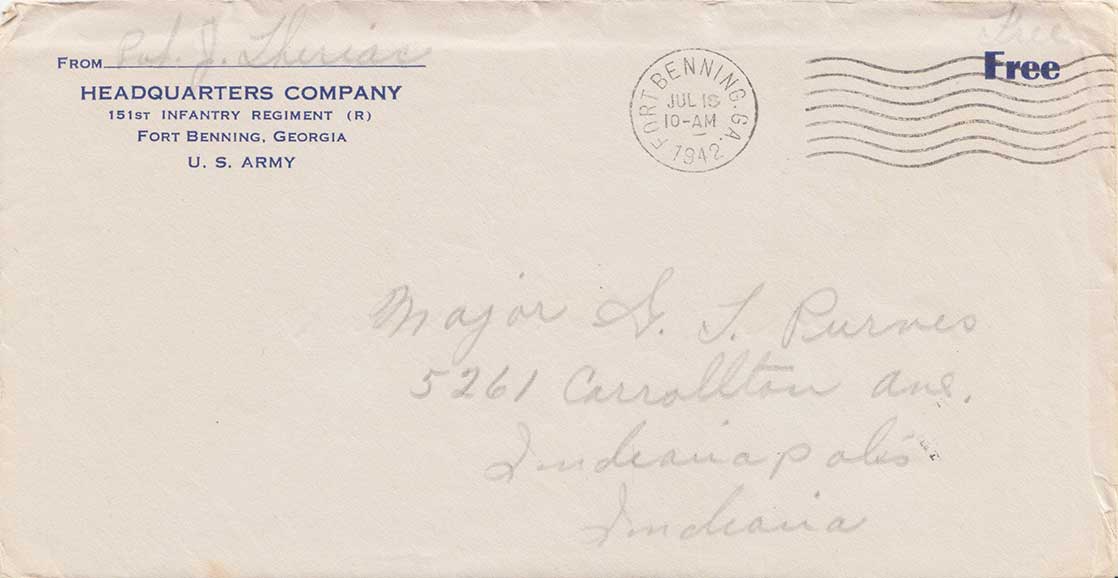 Free
FROM Pvt. J. Therian
Free
HEADQUARTERS COMPANY
151ST INFANTRY REGIMENT (R)
FORT BENNING, GEORGIA
U. S. ARMY
FORT BENNING, GA.
JUL 18
10-AM
1942
Major S. T. Purves
5261 Carrollton Ave.
Indianapolis
Indiana